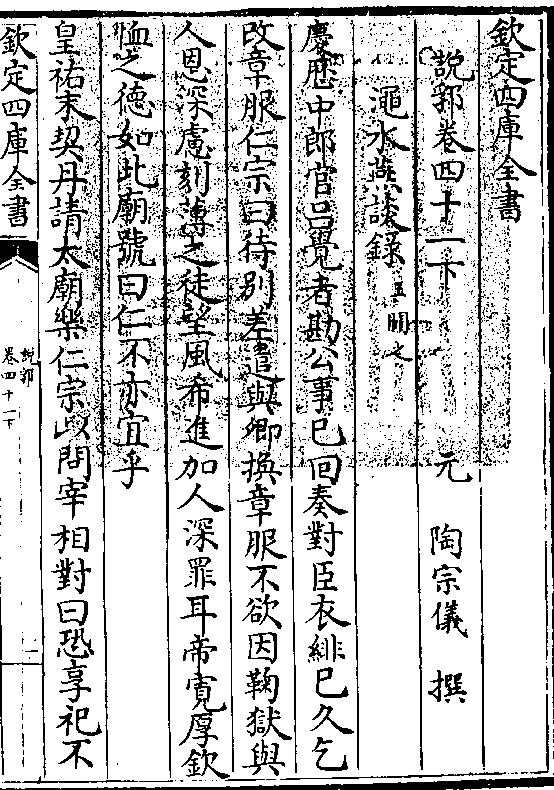 欽定四庫全書
說郛卷四十一下
元 陶宗儀 撰
澠水燕談錄 王闢之
慶歴中郎官吕覺者勘公事已回奏對臣衣緋已久乞
改章服仁宗曰待别差遣與卿換章服不欲因鞫獄與
人恩深慮刻薄之徒望風希進加人深罪耳帝寛厚欽
恤之徳如此廟號曰仁不亦宜乎
皇祐末契丹請太廟樂仁宗以問宰相對曰恐享祀不
欽定四庫全書
說郛
卷四十一下
一